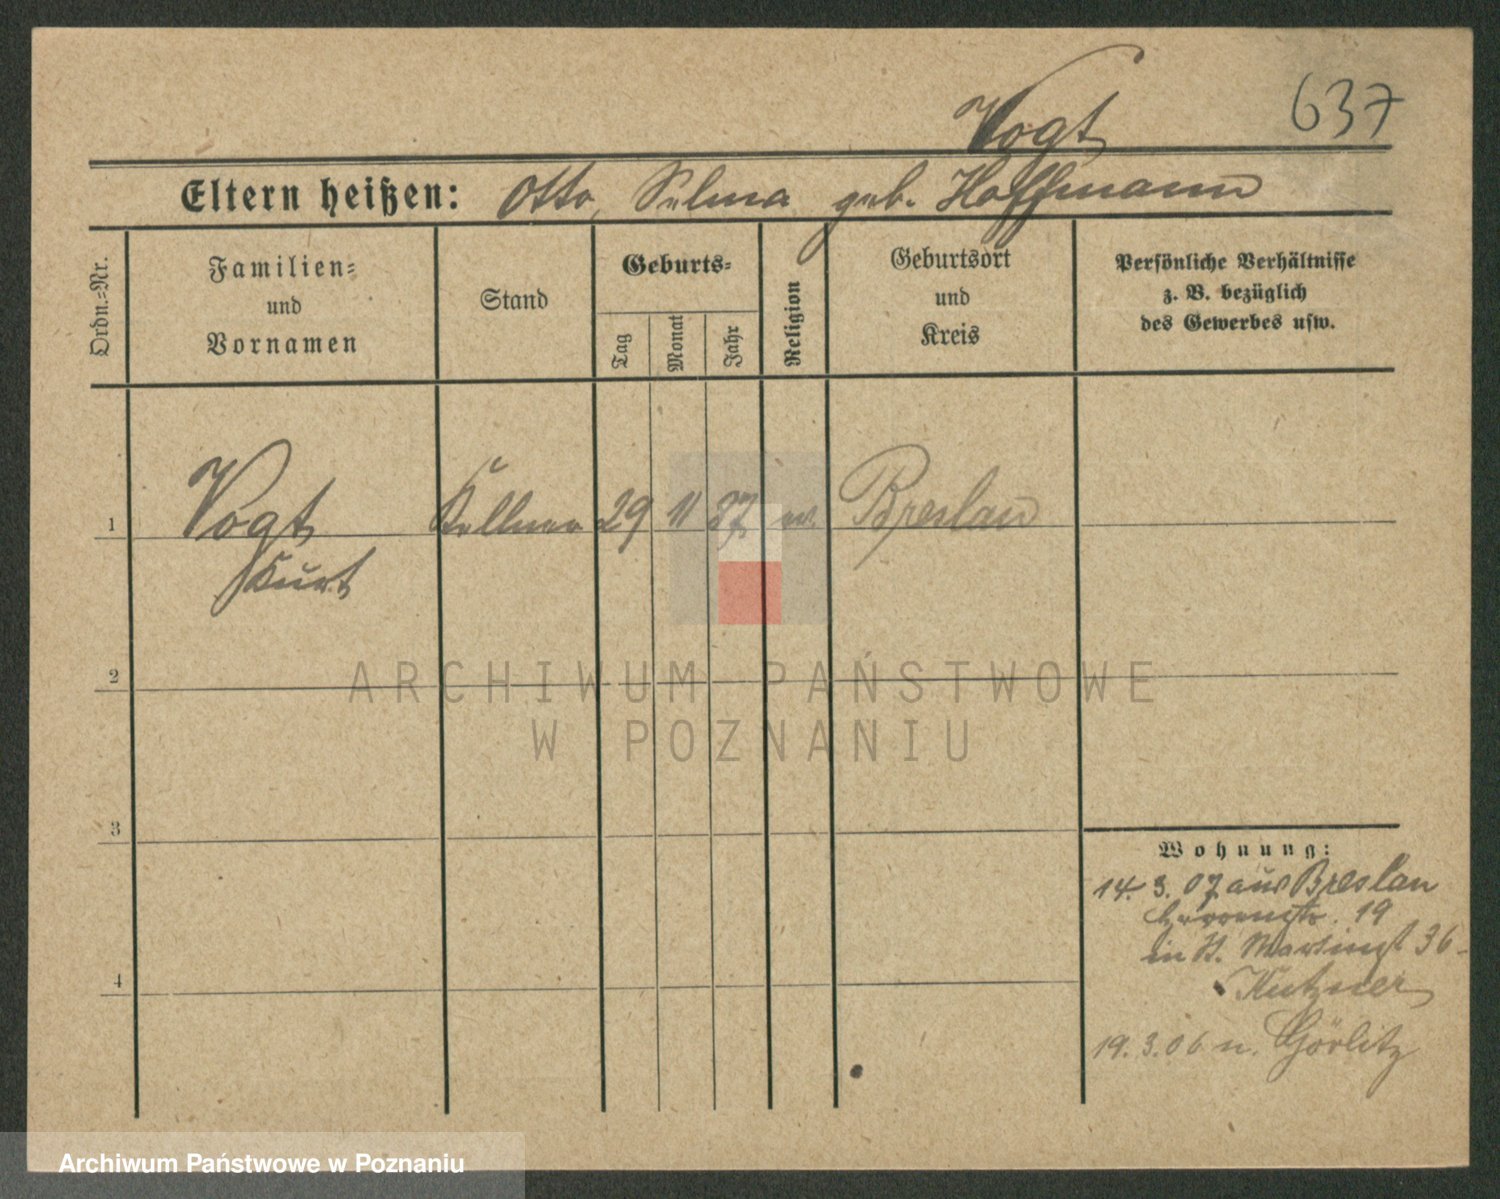 637
Vogt
Eltern heißen: Otto, Selma geb. Hoffmann
Ordn.=Nr.
Familien=
und
Vornamen
Stand
Geburts=
Tag
Monat
Jahr
Religion
Geburtsort
und
Kreis
Persönliche Verhältnisse
z. B. bezüglich
des Gewerbes usw.
1 Vogt Kellner 29 11 87 Breslau
Kurt
2
ARCHIWUM PAŃSTWOWE
W POZNANIU
3
Wohnung:
14. 3. 07 aus Breslau
19
in St. Martinst 36
Kutzner
4
19. 3. 06 n. Görlitz
Archiwum Państwowe w Poznaniu